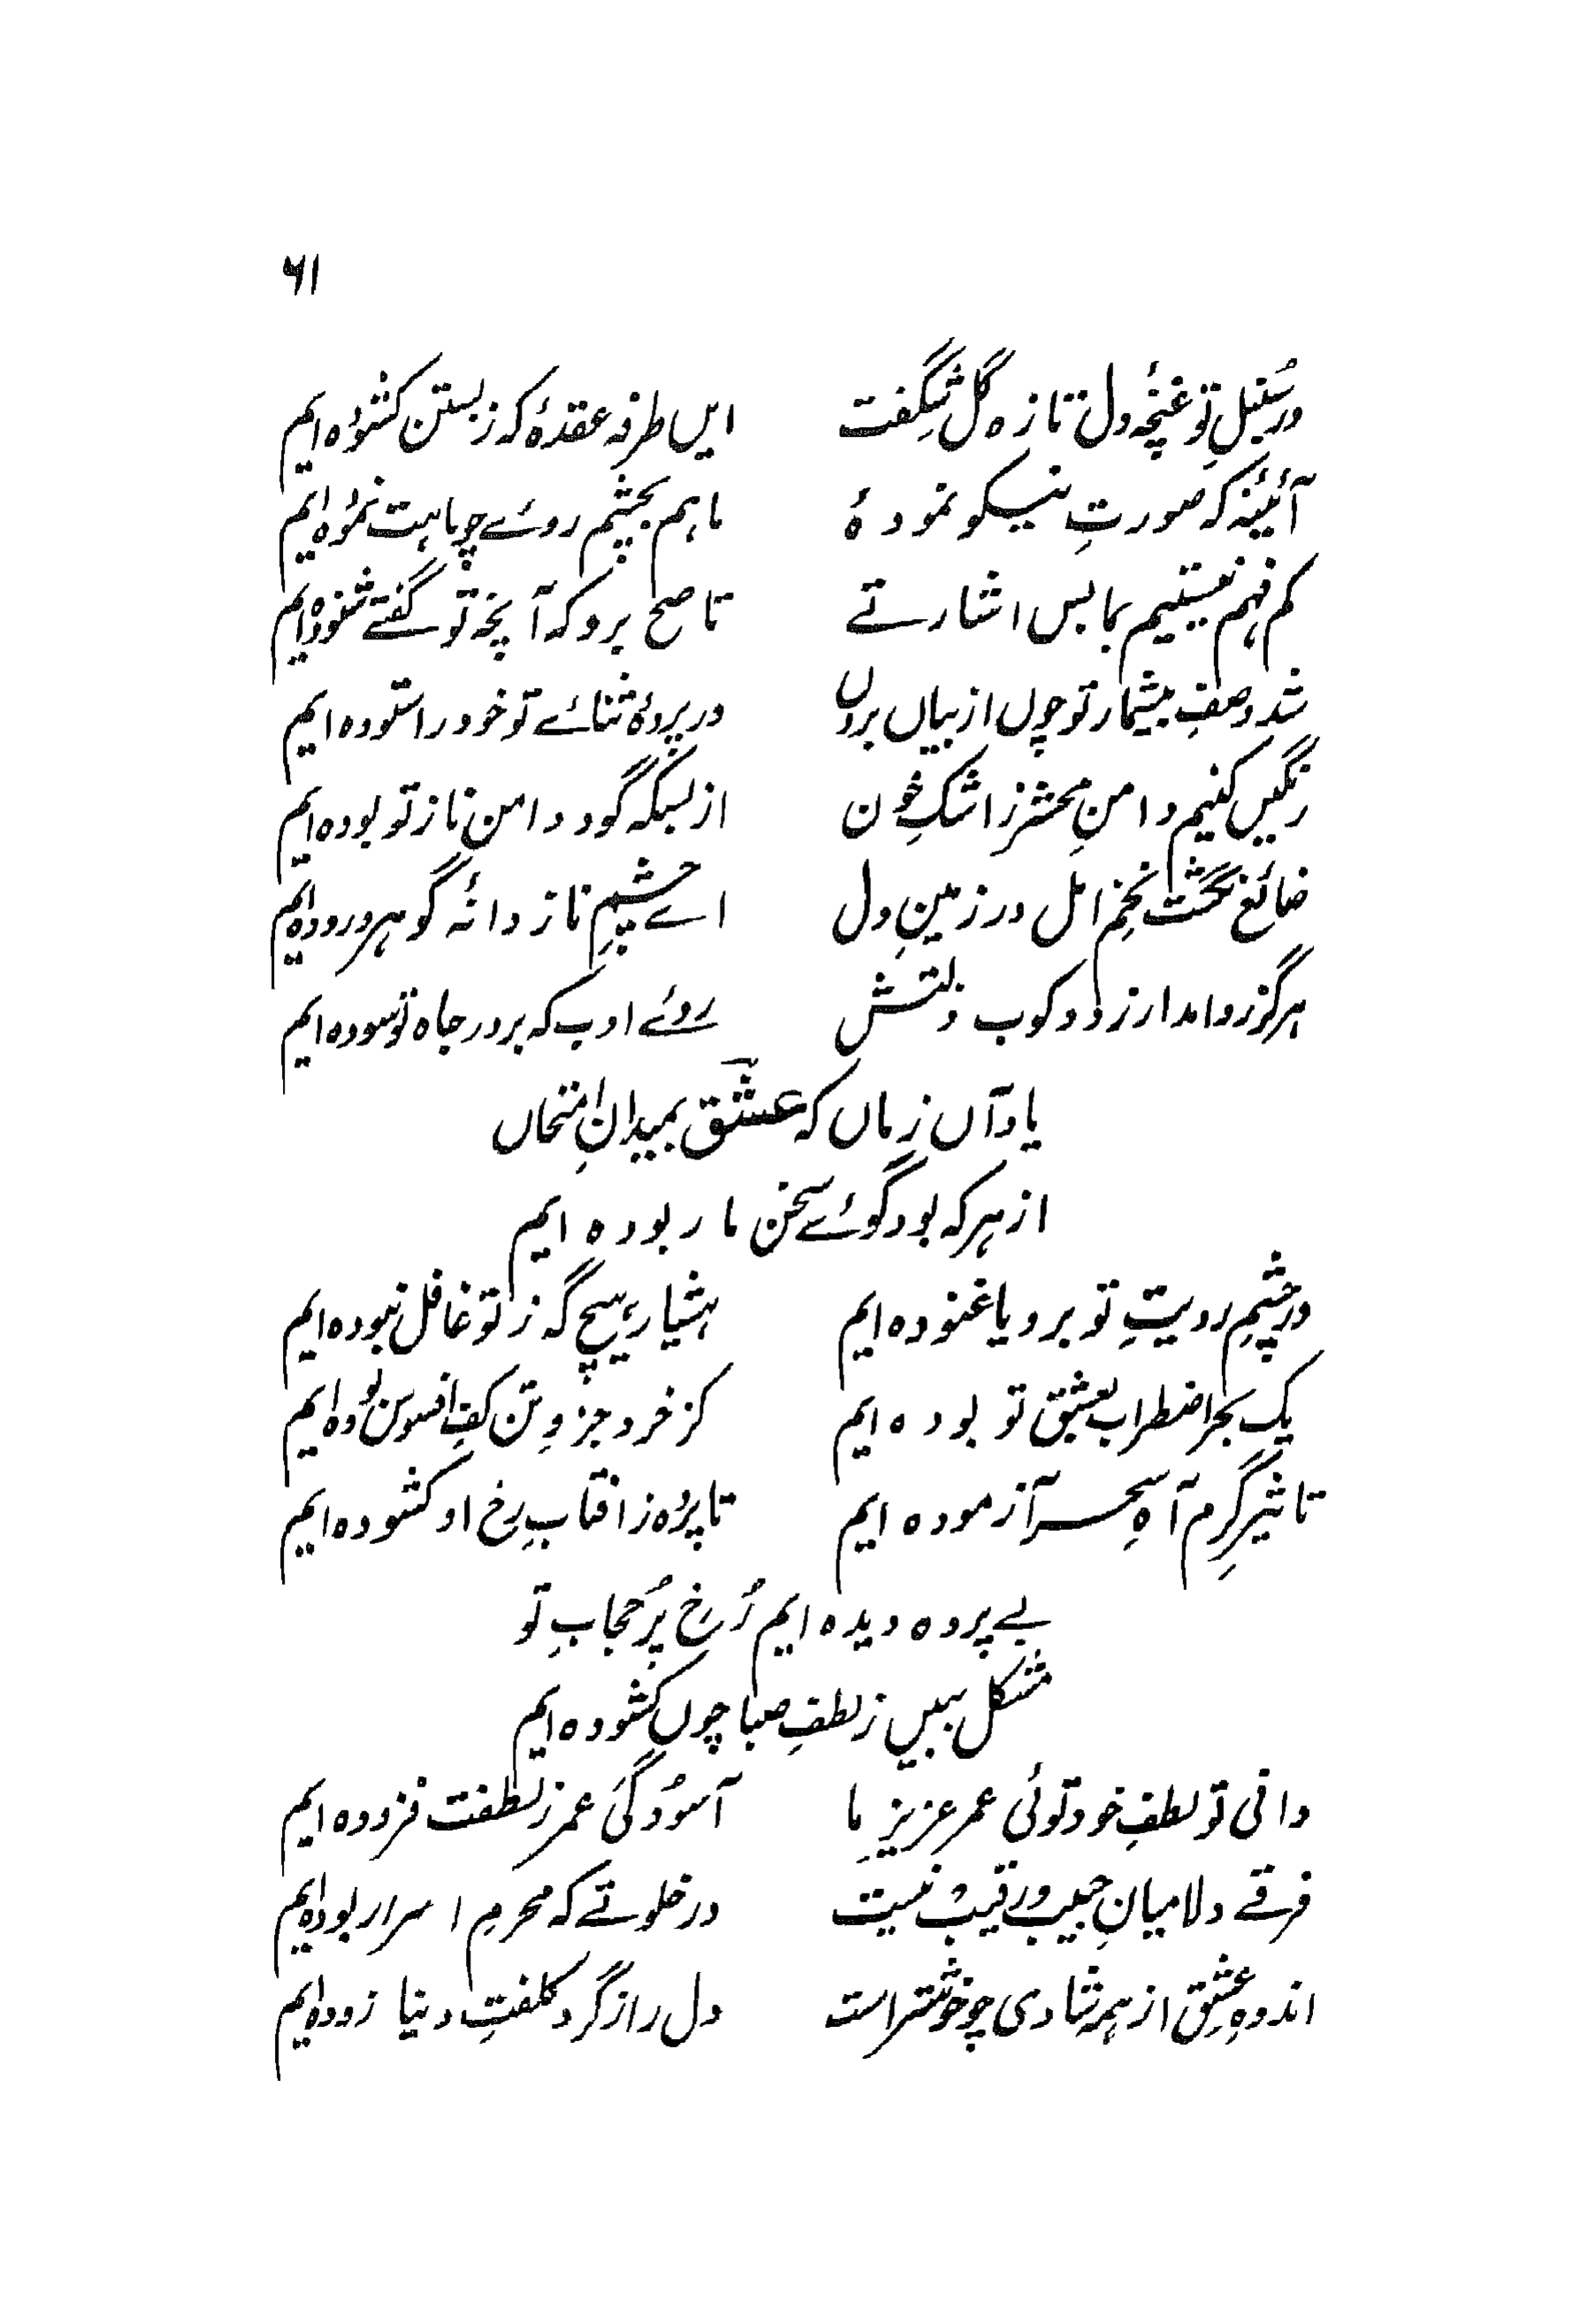 ۶۱
در سُنبلِ تو غنچۂ دل تازہ گل شگِفت ایں طرفہ عقدۂ کہ ز بستن کشودہ ایم
آئینۂ کہ صورتِ نیکو نمودۂ ما ہم بچشم روئے چو ماہت نمودہ ایم
کم فہم نیستیم بما بس اشارتے ناصح برو کہ آنچہ تو گفتے شنودہ ایم
شد وصفِ بیشمار تو چوں از بیاں بروں در پردۂ ثنائے تو خود را ستودہ ایم
رنگیں کنیم دامنِ محشر ز اشکِ خون از بسکہ گود دامن ناز تو بودہ ایم
ضائع نگشت تخمِ امل در زمینِ دل اے چشمِ ناز دانۂ گوہر درودہ ایم
ہرگز روا مدار زد و کوب و ذلتش روئے ادب کہ بر در جاہ تو سودہ ایم
یاد آں زماں کہ عشق بمیدانِ امتحاں
از ہر کہ بود گوئے سخن ما ربودہ ایم
در چشمِ رویتِ تو برویا غنودہ ایم ہشیار ہیچ گہ ز تو غافل نبودہ ایم
یک بحر اضطراب بعشقِ تو بودہ ایم کز خرد جزوِ تن کفِ افسوس بودہ ایم
تاثیرِ گرمِ آہِ سحر آزمودہ ایم تا پردہ ز افتابِ رخ او کشودہ ایم
بے پردہ دیدہ ایم رُخ پرُ حجابِ تو
مشکل ببیں ز لطفِ صبا چوں کشودہ ایم
دانی تو لطفِ خود توئی عمر عزیزِ ما آسُودگیَ عمر ز لطفت فزودہ ایم
فرقے دلا میانِ حبیب و رقیب نیست در خلوتے کہ محرمِ اسرار بودہ ایم
اندوہِ عشق از ہمہ شادی چو خوشتر است دل را ز گردِ کلفتِ دنیا زودہ ایم